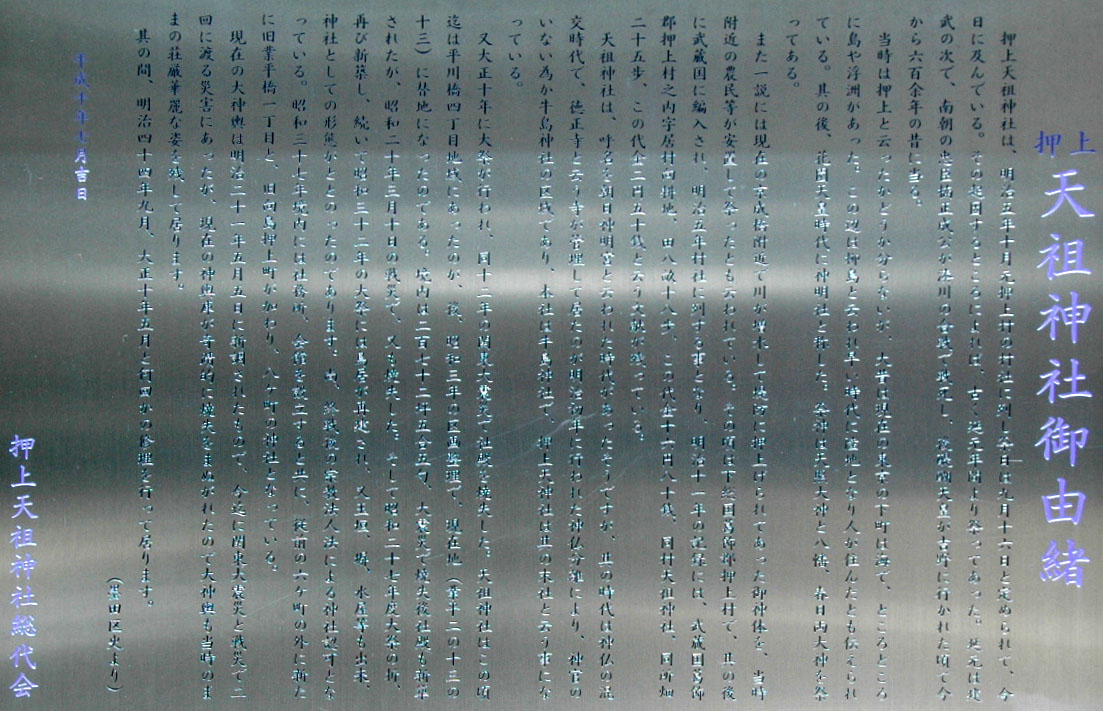 押上
天祖神社御由緒
押上天祖神社は、明治五年十月元押上村の村社に列し祭日は九月十六日と定められて、今
日に及んでいる。その起因するところによれば、古く延元年間より祭ってあった。延元は建
武の次で、南朝の忠臣楠正成公が湊川の合戦で戦死し、後醍醐天皇が吉野に行かれた頃で今
から六百余年の昔に当る。
当時は押上と云ったかどうか分らないが、大昔は現在の東京の下町は海で、ところどころ
に島や浮洲があった。この辺は柳島と云われ早い時代に陸地となり人が住んだとも伝えられ
ている。其の後、花園天皇時代に神明社と称した。祭神は天照大神と八幡、春日両大神を祭
ってある。
また一説には現在の京成橋附近で川が増水して城内に押上げられてあった御神体を、当時
附近の農民等が安置して祭ったとも云われている。その頃は下総国葛飾郡押上村で、其の後
に武蔵国に編入され、明治五年村社に列する事となり、明治十一年の記録には、武蔵国葛飾
郡押上村之内字居村耕地、田八畝十八歩、この代金十一円八十銭、同村天祖神社、同所畑
二十五歩、この代金二円五十銭と云う文献が残っている。
天祖神社は、呼名を朝日神明宮と云われた時代があったそうですが、其の時代は神仏の混
交時代で、徳正寺と云う寺が管理して居たのが明治初年に行われた神仏分離により、神官の
いない為か牛島神社の区域であり、本社は牛島神社で、押上天祖神社は其の末社と云う事にな
っている。
又大正十年に大祭が行われ、同十二年の関東大震災で社殿を焼失した。天祖神社はこの頃
迄は平川橋四丁目地域にあったのが、後、昭和三年の区画整理で、現在地（業平二の十三の
十三）に替地になったのである。境内は二百七十二坪五合五勺、大震災で焼失後社殿も新築
されたが、昭和二十年三月十日の戦災で、又も焼失した。そして昭和二十七年度大祭の折、
再び新築し、続いて昭和三十二年の大祭には鳥居が再建され、又玉垣、塀、水屋等も出来、
神社としての形態がととのったのであります。尚、終戦後の宗教法人法による神社庁々とな
っている。昭和三十七年境内には社務所、会館を設立すると共に、従前の六ケ町の外に新た
に旧業平橋一丁目と、旧向島押上町が加わり、八ケ町の神社となっている。
現在の大神輿は明治二十一年五月五日に新調されたもので、今迄に関東大震災と戦災で二
回に渡る災害にあったが、現在の神輿庫が奇蹟的に焼失をまぬがれたので大神輿も当時のま
まの荘厳華麗な姿を残して居ります。
其の間、明治四十四年九月、大正十年五月と何回かの修理を行って居ります。
（墨田区史より）
平成十年七月吉日
押上天祖神社総代会